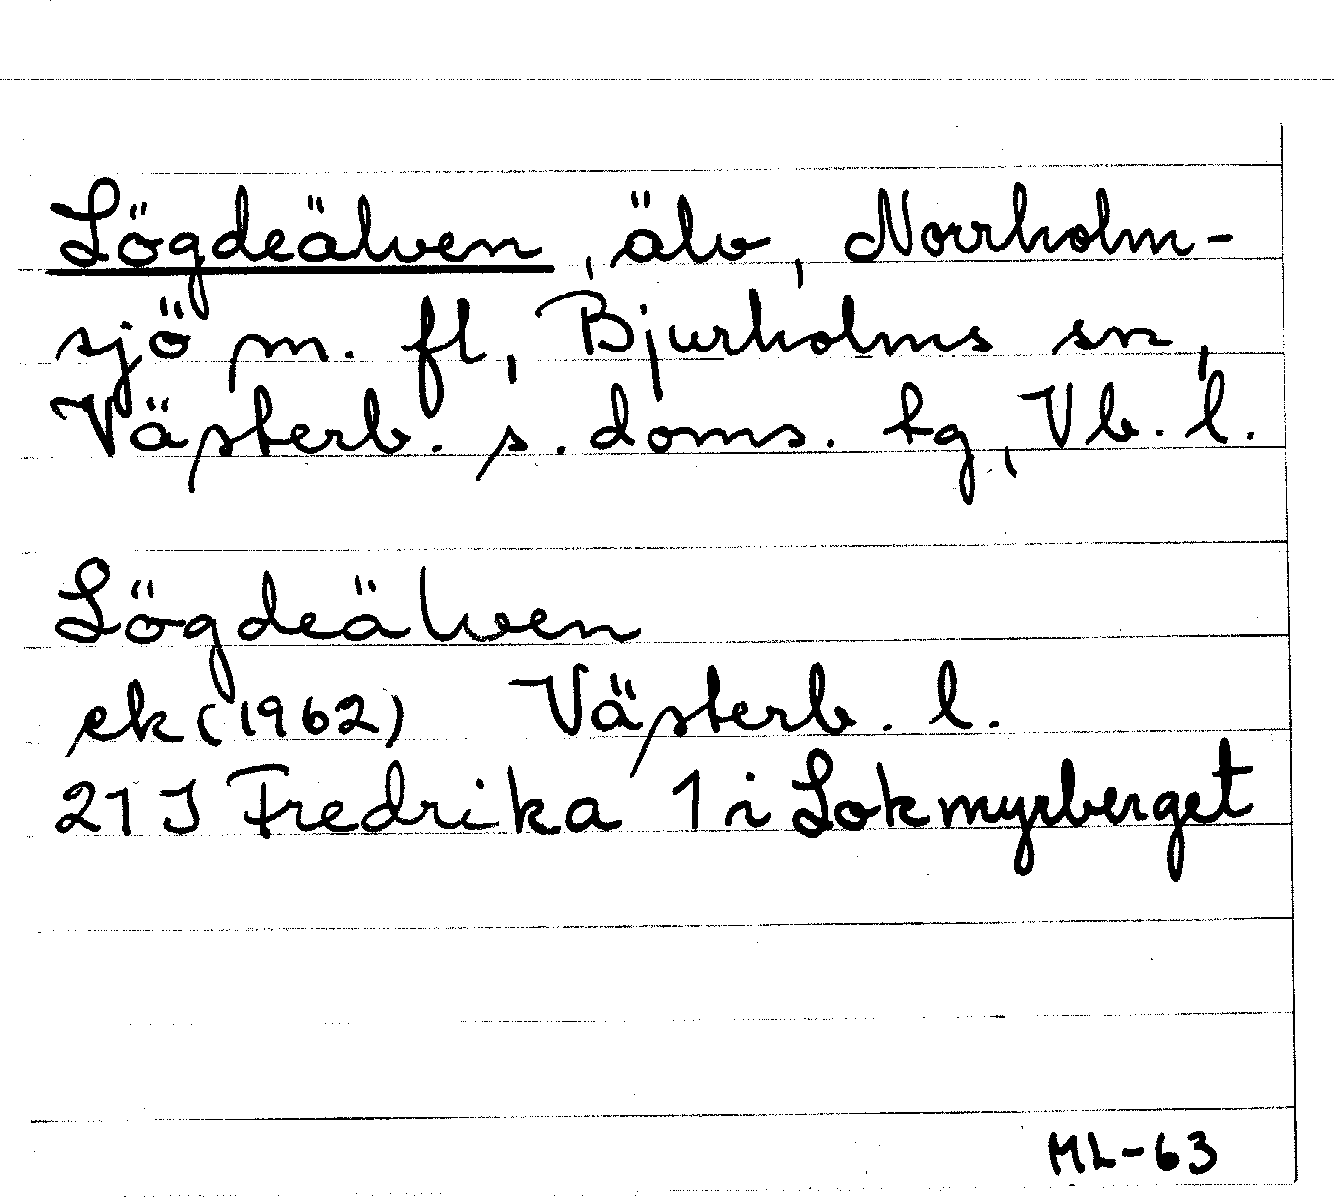 Lögdeälven, älv, Norrholm-
sjö m. fl, Bjurholms sn,
Västerb. s. doms. tg, Vb. l.
Lögdeälven
ek (1962) Västerb. l.
21 J Fredrika 1 i Lokmyrberget
ML-63